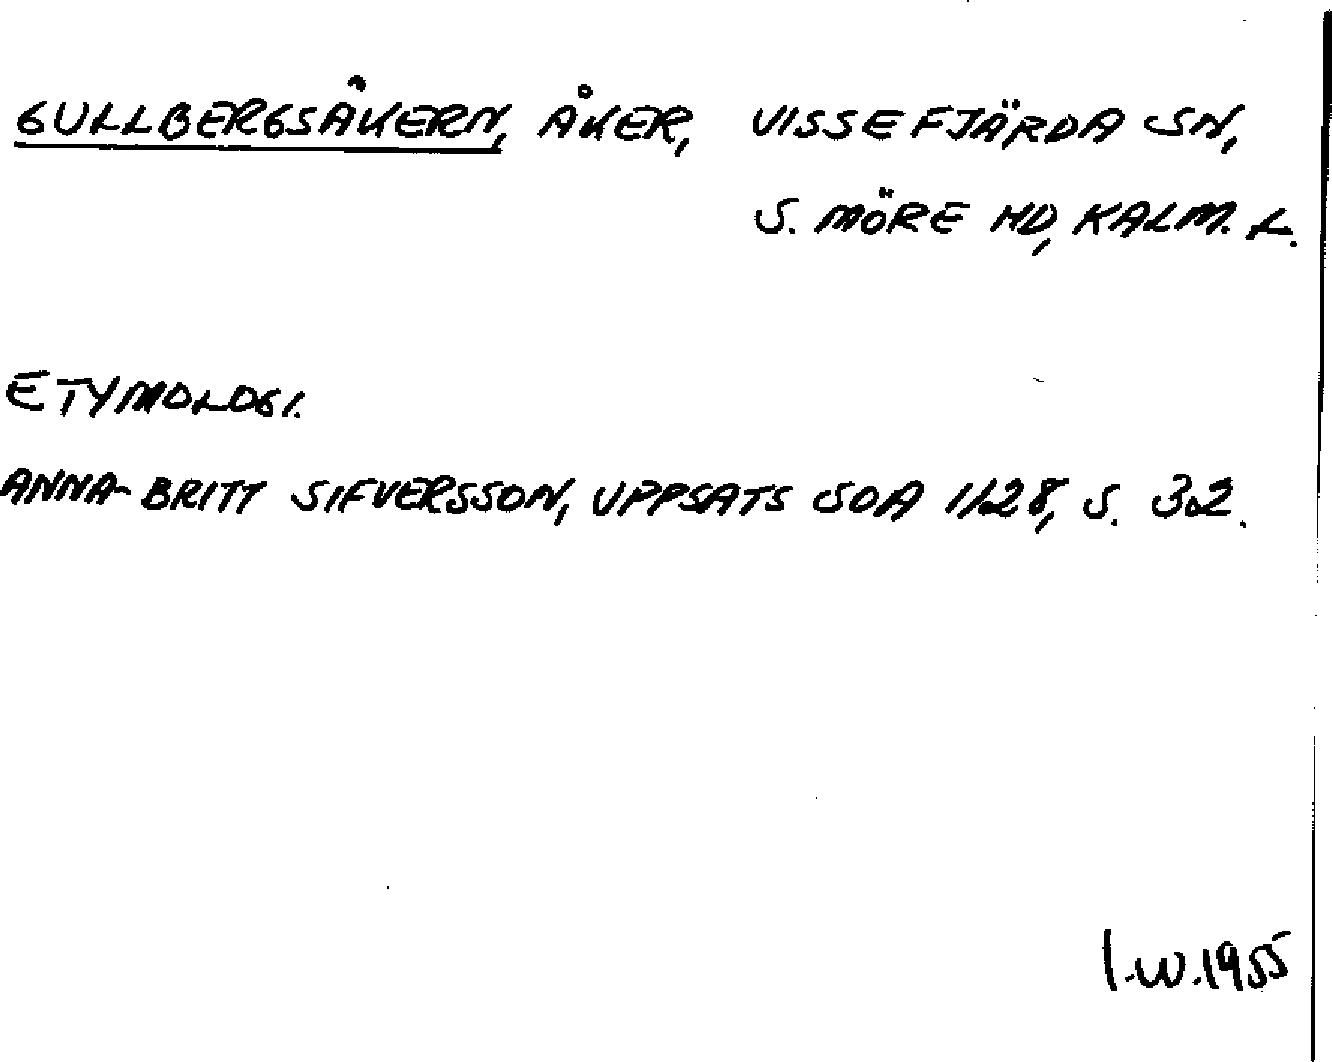 GULLBERGSÅKERN, ÅKER, VISSEFJÄRDA SN,
S. MÖRE HD, KALM. L.
ETYMOLOGI.
ANNA-BRITT SIFVERSSON, UPPSATS SOA 1128, S. 32.
I.W.1955